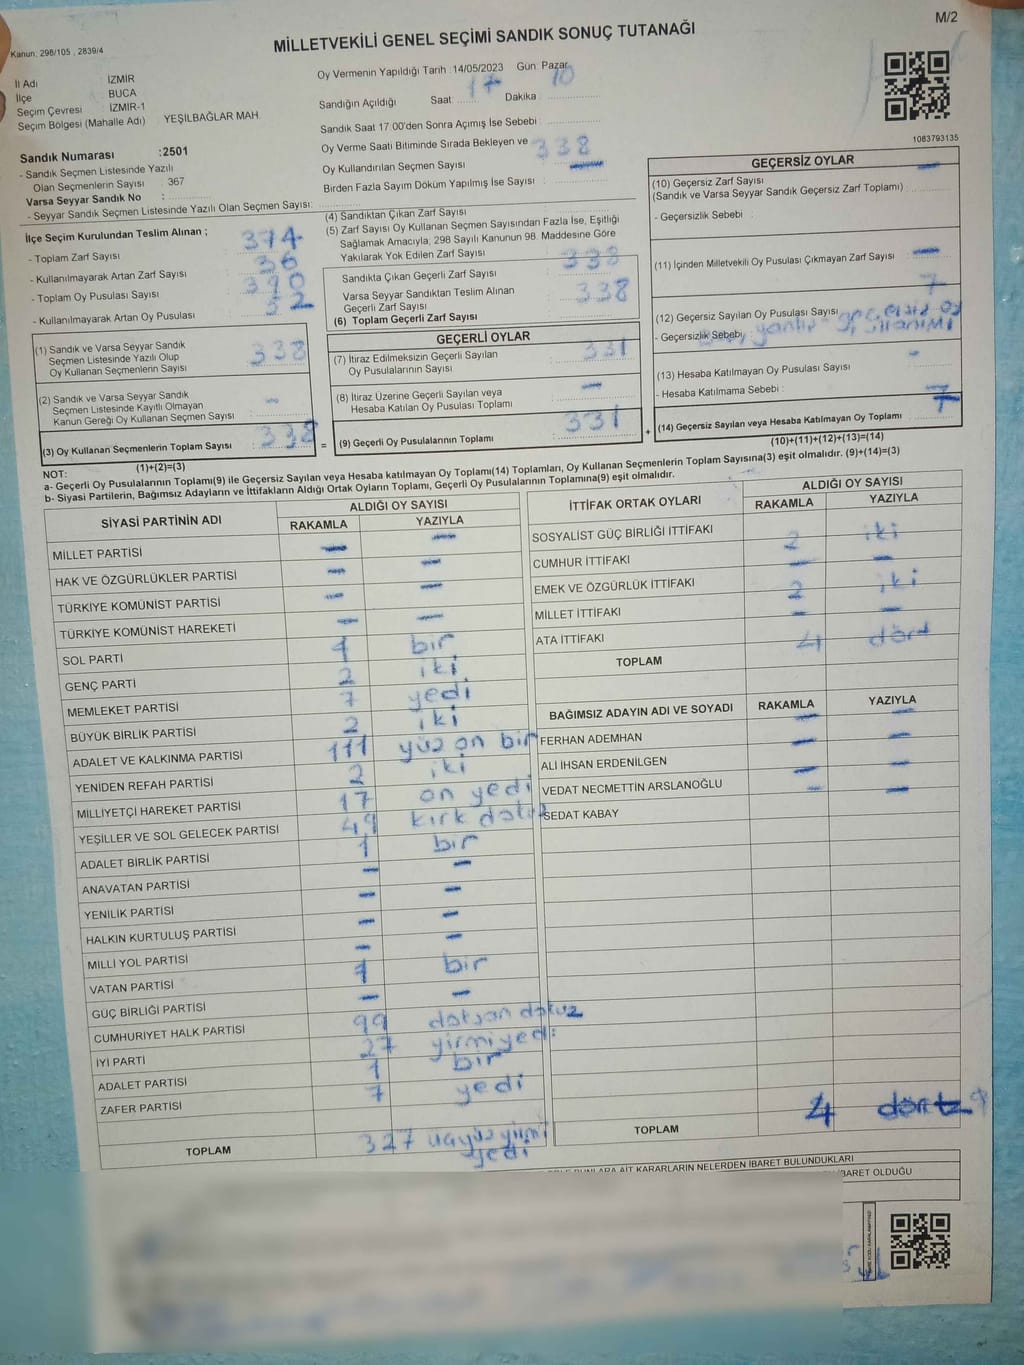 M/2
Kanun, 298/105 , 2839/4
MİLLETVEKİLİ GENEL SEÇİMİ SANDIK SONUÇ TUTANAĞI
İl Adı : İZMİR
İlçe : BUCA
Seçim Çevresi : İZMİR-1
Seçim Bölgesi (Mahalle Adı) : YEŞİLBAĞLAR MAH.
Sandık Numarası :2501
- Sandık Seçmen Listesinde Yazılı
Olan Seçmenlerin Sayısı : 367
Varsa Seyyar Sandık No :
- Seyyar Sandık Seçmen Listesinde Yazılı Olan Seçmen Sayısı:
Oy Vermenin Yapıldığı Tarih :14/05/2023 Gün: Pazar
Sandığın Açıldığı Saat 17 Dakika : 10
Sandık Saat 17:00'den Sonra Açımış İse Sebebi :
Oy Verme Saati Bitiminde Sırada Bekleyen ve
Oy Kullandırılan Seçmen Sayısı : 338
Birden Fazla Sayım Döküm Yapılmış İse Sayısı :
1083793135
İlçe Seçim Kurulundan Teslim Alınan ;
- Toplam Zarf Sayısı : 374
- Kullanılmayarak Artan Zarf Sayısı : 36
- Toplam Oy Pusulası Sayısı : 390
- Kullanılmayarak Artan Oy Pusulası : 52
(1) Sandık ve Varsa Seyyar Sandık
Seçmen Listesinde Yazılı Olup
Oy Kullanan Seçmenlerin Sayısı : 338
(2) Sandık ve Varsa Seyyar Sandık
Seçmen Listesinde Kayıtlı Olmayan
Kanun Gereği Oy Kullanan Seçmen Sayısı : -
(3) Oy Kullanan Seçmenlerin Toplam Sayısı : 338 =
(1)+(2)=(3)
(4) Sandıktan Çıkan Zarf Sayısı
(5) Zarf Sayısı Oy Kullanan Seçmen Sayısından Fazla İse, Eşitliği
Sağlamak Amacıyla, 298 Sayılı Kanunun 98. Maddesine Göre
Yakılarak Yok Edilen Zarf Sayısı :
Sandıkta Çıkan Geçerli Zarf Sayısı : 338
Varsa Seyyar Sandıktan Teslim Alınan
Geçerli Zarf Sayısı : 338
(6) Toplam Geçerli Zarf Sayısı
GEÇERLİ OYLAR
(7) İtiraz Edilmeksizin Geçerli Sayılan
Oy Pusulalarının Sayısı : 331
(8) İtiraz Üzerine Geçerli Sayılan veya
Hesaba Katılan Oy Pusulası Toplamı : -
(9) Geçerli Oy Pusulalarının Toplamı : 331 +
GEÇERSİZ OYLAR
(10) Geçersiz Zarf Sayısı
(Sandık ve Varsa Seyyar Sandık Geçersiz Zarf Toplamı) : -
- Geçersizlik Sebebi :
(11) İçinden Milletvekili Oy Pusulası Çıkmayan Zarf Sayısı : -
(12) Geçersiz Sayılan Oy Pusulası Sayısı : 7
- Geçersizlik Sebebi : geçersiz oy
(13) Hesaba Katılmayan Oy Pusulası Sayısı : -
- Hesaba Katılmama Sebebi :
(14) Geçersiz Sayılan veya Hesaba Katılmayan Oy Toplamı : 7
(10)+(11)+(12)+(13)=(14)
NOT:
a- Geçerli Oy Pusulalarının Toplamı(9) ile Geçersiz Sayılan veya Hesaba katılmayan Oy Toplamı(14) Toplamları, Oy Kullanan Seçmenlerin Toplam Sayısına(3) eşit olmalıdır. (9)+(14)=(3)
b- Siyasi Partilerin, Bağımsız Adayların ve İttifakların Aldığı Ortak Oyların Toplamı, Geçerli Oy Pusulalarının Toplamına(9) eşit olmalıdır.
SİYASİ PARTİNİN ADI ALDIĞI OY SAYISI
RAKAMLA YAZIYLA
MİLLET PARTİSİ - -
HAK VE ÖZGÜRLÜKLER PARTİSİ - -
TÜRKİYE KOMÜNİST PARTİSİ - -
TÜRKİYE KOMÜNİST HAREKETİ - -
SOL PARTİ 1 bir
GENÇ PARTİ 2 iki
MEMLEKET PARTİSİ 7 yedi
BÜYÜK BİRLİK PARTİSİ 2 iki
ADALET VE KALKINMA PARTİSİ 111 yüz on bir
YENİDEN REFAH PARTİSİ 2 iki
MİLLİYETÇİ HAREKET PARTİSİ 17 on yedi
YEŞİLLER VE SOL GELECEK PARTİSİ 49 kırk dokuz
ADALET BİRLİK PARTİSİ 1 bir
ANAVATAN PARTİSİ - -
YENİLİK PARTİSİ - -
HALKIN KURTULUŞ PARTİSİ - -
MİLLİ YOL PARTİSİ - -
VATAN PARTİSİ 1 bir
GÜÇ BİRLİĞİ PARTİSİ - -
CUMHURİYET HALK PARTİSİ 99 doksan dokuz
İYİ PARTİ 27 yirmi yedi
ADALET PARTİSİ 1 bir
ZAFER PARTİSİ 7 yedi
TOPLAM 327 üçyüz yirmi
yedi
İTTİFAK ORTAK OYLARI ALDIĞI OY SAYISI
RAKAMLA YAZIYLA
SOSYALİST GÜÇ BİRLİĞİ İTTİFAKI
CUMHUR İTTİFAKI 2 iki
EMEK VE ÖZGÜRLÜK İTTİFAKI - -
MİLLET İTTİFAKI 2 iki
ATA İTTİFAKI - -
TOPLAM 4 dört
BAĞIMSIZ ADAYIN ADI VE SOYADI RAKAMLA YAZIYLA
FERHAN ADEMHAN - -
ALİ İHSAN ERDENİLGEN - -
VEDAT NECMETTİN ARSLANOĞLU - -
SEDAT KABAY - -
TOPLAM 4 dört
BUNLARA AİT KARARLARIN NELERDEN İBARET BULUNDUKLARI
İBARET OLDUĞU